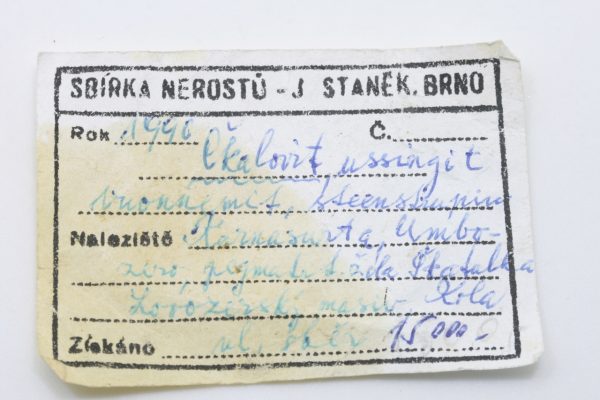 SBÍRKA NEROSTŮ - J STANĚK, BRNO
Rok 1990 Č.
Čkalovit ussingit
vuonnemit, steenstrupin
Naleziště Karnasurta, Umbo-
zero, pegmatit žíla Škatulka
Lovozerský masiv Kola
Získáno vl. sběr 15000